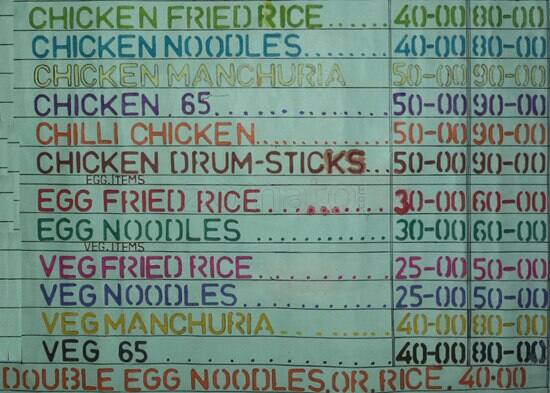 CHICKEN FRIED RICE...... 40-00 80-00
CHICKEN NOODLES...... 40-00 80-00
CHICKEN MANCHURIA 50-00 90-00
CHICKEN . 65............ 50-00 90-00
CHILLI CHICKEN.......... 50-00 90-00
CHICKEN DRUM-STICKS... 50-00 90-00
EGG.ITEMS
EGG FRIED RICE.......... 30-00 60-00
EGG NOODLES .......... 30-00 60-00
VEG.ITEMS
VEG FRIED RICE.......... 25-00 50-00
VEG NOODLES.......... 25-00 50-00
VEG MANCHURIA.......... 40-00 80-00
VEG 65 .......... 40-00 80-00
DOUBLE EGG NOODLES.OR.RICE. 40.00